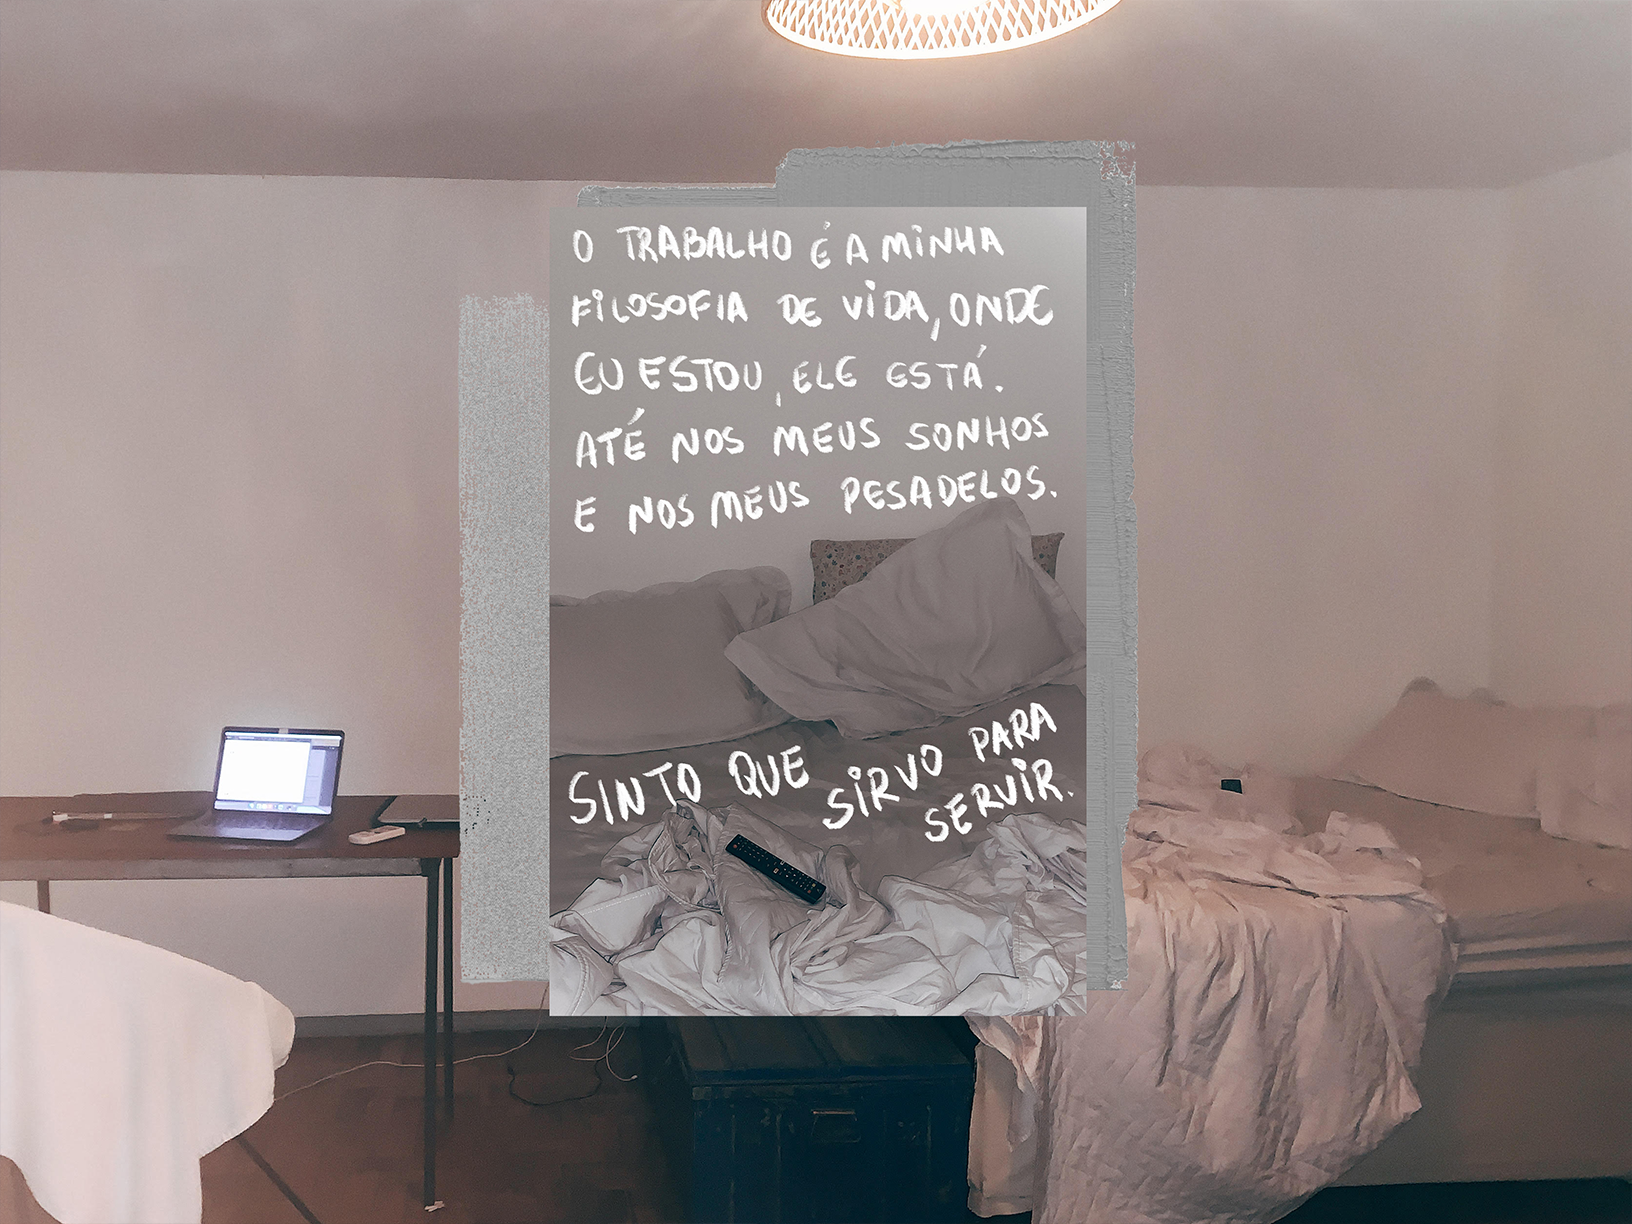 O TRABALHO É A MINHA
FILOSOFIA DE VIDA, ONDE
EU ESTOU, ELE ESTÁ.
ATÉ NOS MEUS SONHOS
E NOS MEUS PESADELOS.
SINTO QUE SIRVO PARA
SERVIR.